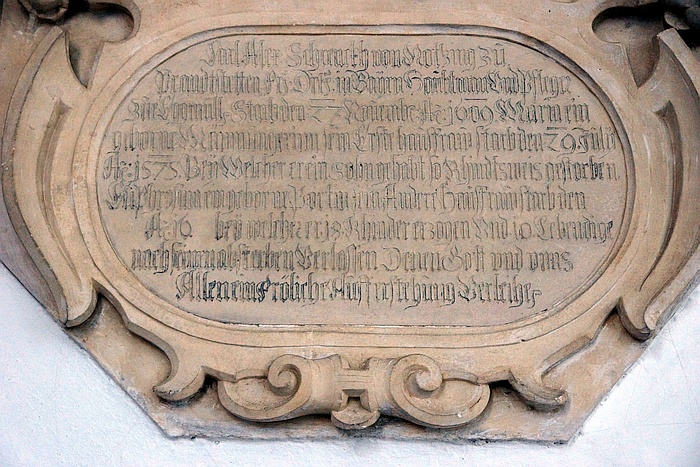 Carl Alex Schrenckh von Notzing zu
Brandtstetten Frh: Drt: in Bayrn Haubtman Vnd Pfleger
zur Starb den 27 Nouembr Aº: 1609 Maria ein
geborne Memmingerin sein Erste hausfrau starb den 29 Julij
Aº: 1575. Bey Welcher er ein sohn gehabt so Khindtsweis gestorben.
Euphrosina ein geborne sein Andere Hausfrau starb den
Aº: 16 bey welcher er 18 Khinder erzogen Vnd 10 Lebendige
nach seinem absterben Verlassen Denen Gott vnd vnns
Allen ein fröliche Aufferstehung Verleihe